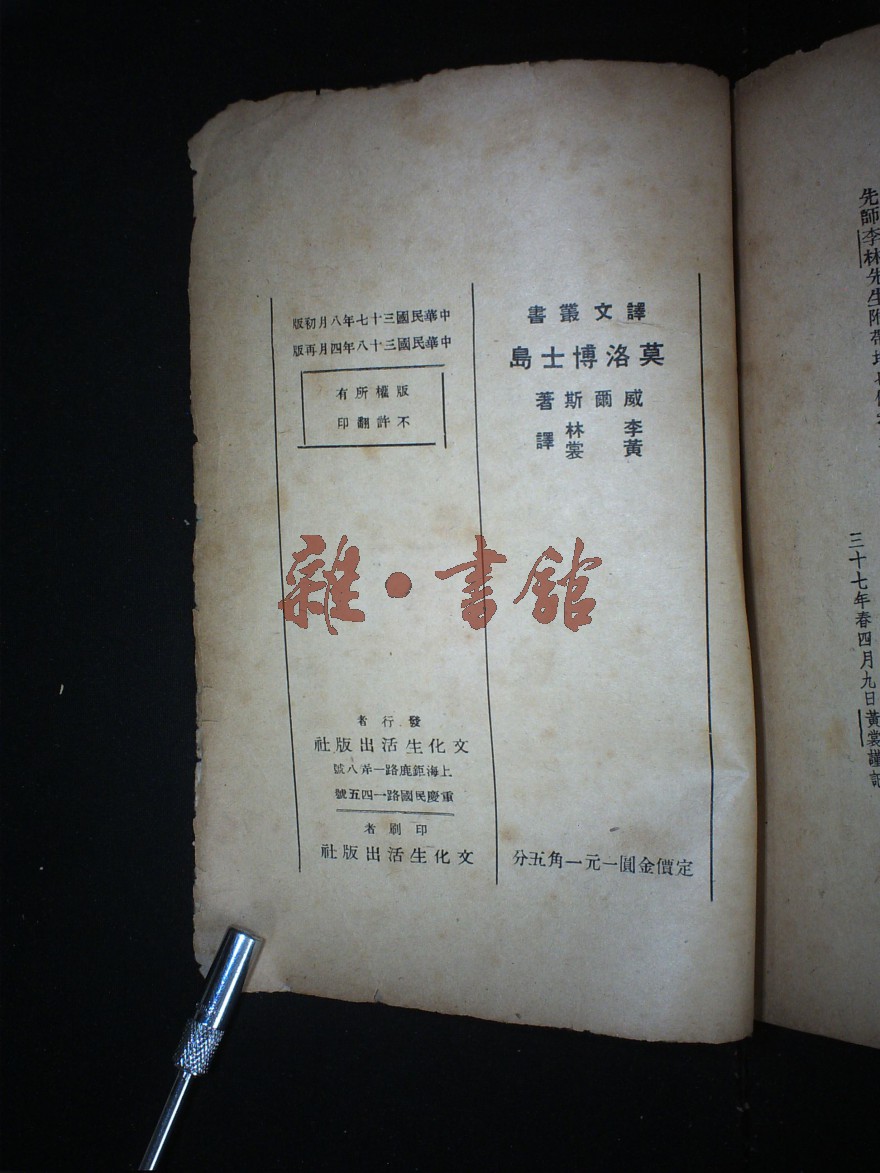 譯文叢書
莫洛博士島
威爾斯著
李林
黃裳
譯
定價金圓一元一角五分
中華民國三十七年八月初版
中華民國三十八年四月再版
版權所有
不許翻印
發行者
文化生活出版社
上海鉅鹿路一弄八號
重慶民國路一四五號
印刷者
文化生活出版社
雜·書館
先師李林先生附帶
三十七年春四月九日黃裳謹記